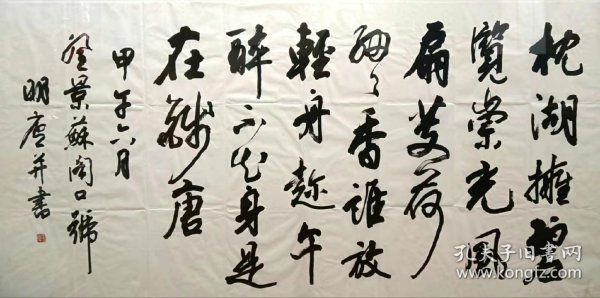 枕湖擁碧
覽崇光風
扇芰荷
細々香誰放
輕舟趂午
醉不知身是
在錢唐
甲午六月
登景蘇閣口號
明唐并書
孔夫子旧书网
www.kongfz.com